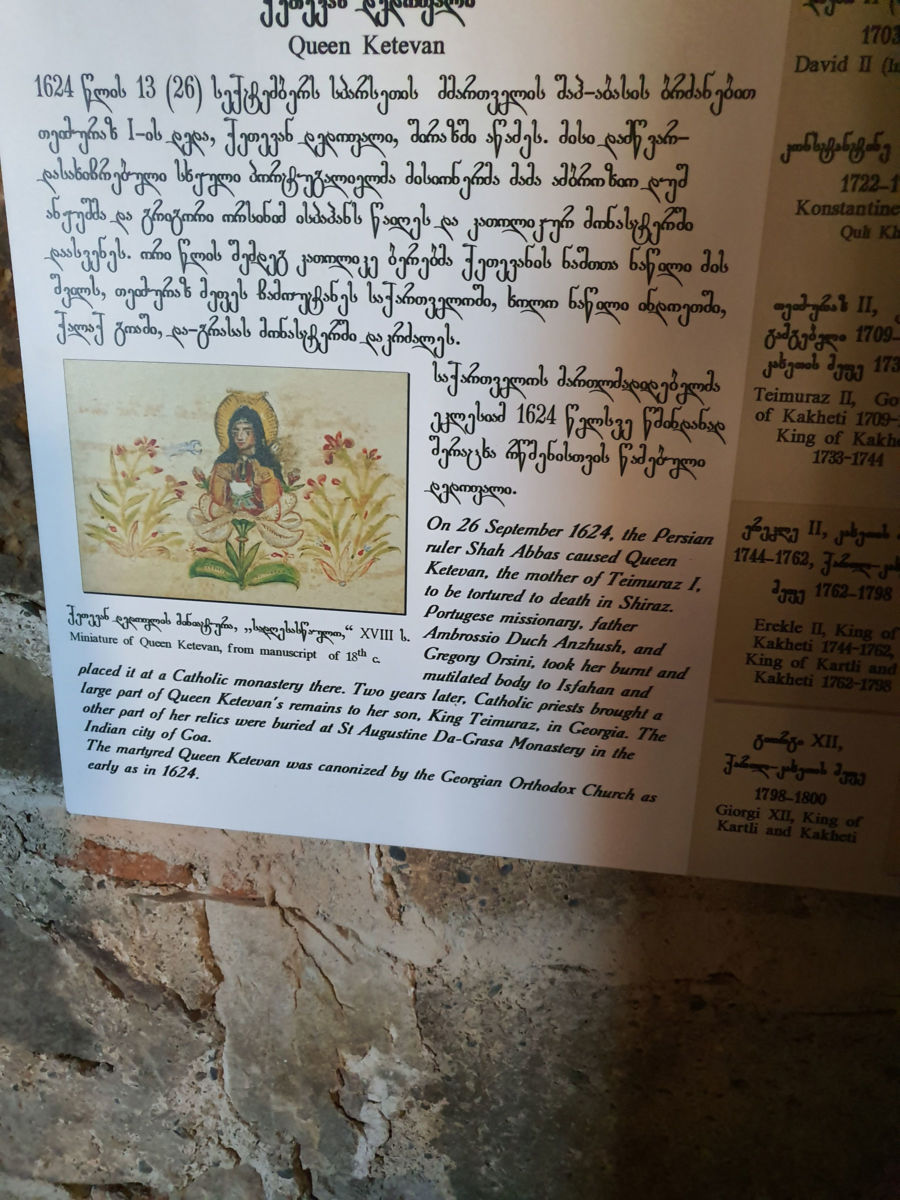 ქეთევან დედოფალი
Queen Ketevan
1624 წლის 13 (26) სექტემბერს სპარსეთის მმართველის შაჰ-აბასის ბრძანებით
თეიმურაზ I-ის დედა, ქეთევან დედოფალი, შირაზში აწამეს. მისი დამწვარ-
დასახიჩრებული სხეული პორტუგალიელმა მისიონერმა მამა ამბროზიო დუშ
ანჟუშმა და გრიგორი ორსინიმ ისპაჰანს წაიღეს და კათოლიკურ მონასტერში
დაასვენეს. ორი წლის შემდეგ კათოლიკე ბერებმა ქეთევანის ნაშთთა ნაწილი მის
შვილს, თეიმურაზ მეფეს ჩამოუტანეს საქართველოში, ხოლო ნაწილი ინდოეთში,
ქალაქ გოაში, და-გრასას მონასტერში დაკრძალეს.
საქართველოს მართლმადიდებელმა
ეკლესიამ 1624 წელსვე წმინდანად
შერაცხა რწმენისთვის წამებული
დედოფალი.
On 26 September 1624, the Persian
ruler Shah Abbas caused Queen
Ketevan, the mother of Teimuraz I,
to be tortured to death in Shiraz.
Portugese missionary, father
Ambrossio Duch Anzhush, and
Gregory Orsini, took her burnt and
mutilated body to Isfahan and
placed it at a Catholic monastery there. Two years later, Catholic priests brought a
large part of Queen Ketevan's remains to her son, King Teimuraz, in Georgia. The
other part of her relics were buried at St Augustine Da-Grasa Monastery in the
Indian city of Goa.
The martyred Queen Ketevan was canonized by the Georgian Orthodox Church as
early as in 1624.
ქეთევან დედოფლის მინიატურა, „სადღესასწაულო,“ XVIII ს.
Miniature of Queen Ketevan, from manuscript of 18th c.
1703
David II
კონსტანტინე
1722-1
Konstantine
Quli Kh
თეიმურაზ II,
გამგებელი 1709-
კახეთის მეფე 173
Teimuraz II, Go
of Kakheti 1709-
King of Kakhe
1733-1744
ერეკლე II, კახეთის
1744-1762, ქართლ-კახ
მეფე 1762-1798
Erekle II, King of
Kakheti 1744-1762,
King of Kartli and
Kakheti 1762-1798
გიორგი XII,
ქართლ-კახეთის მეფე
1798-1800
Giorgi XII, King of
Kartli and Kakheti